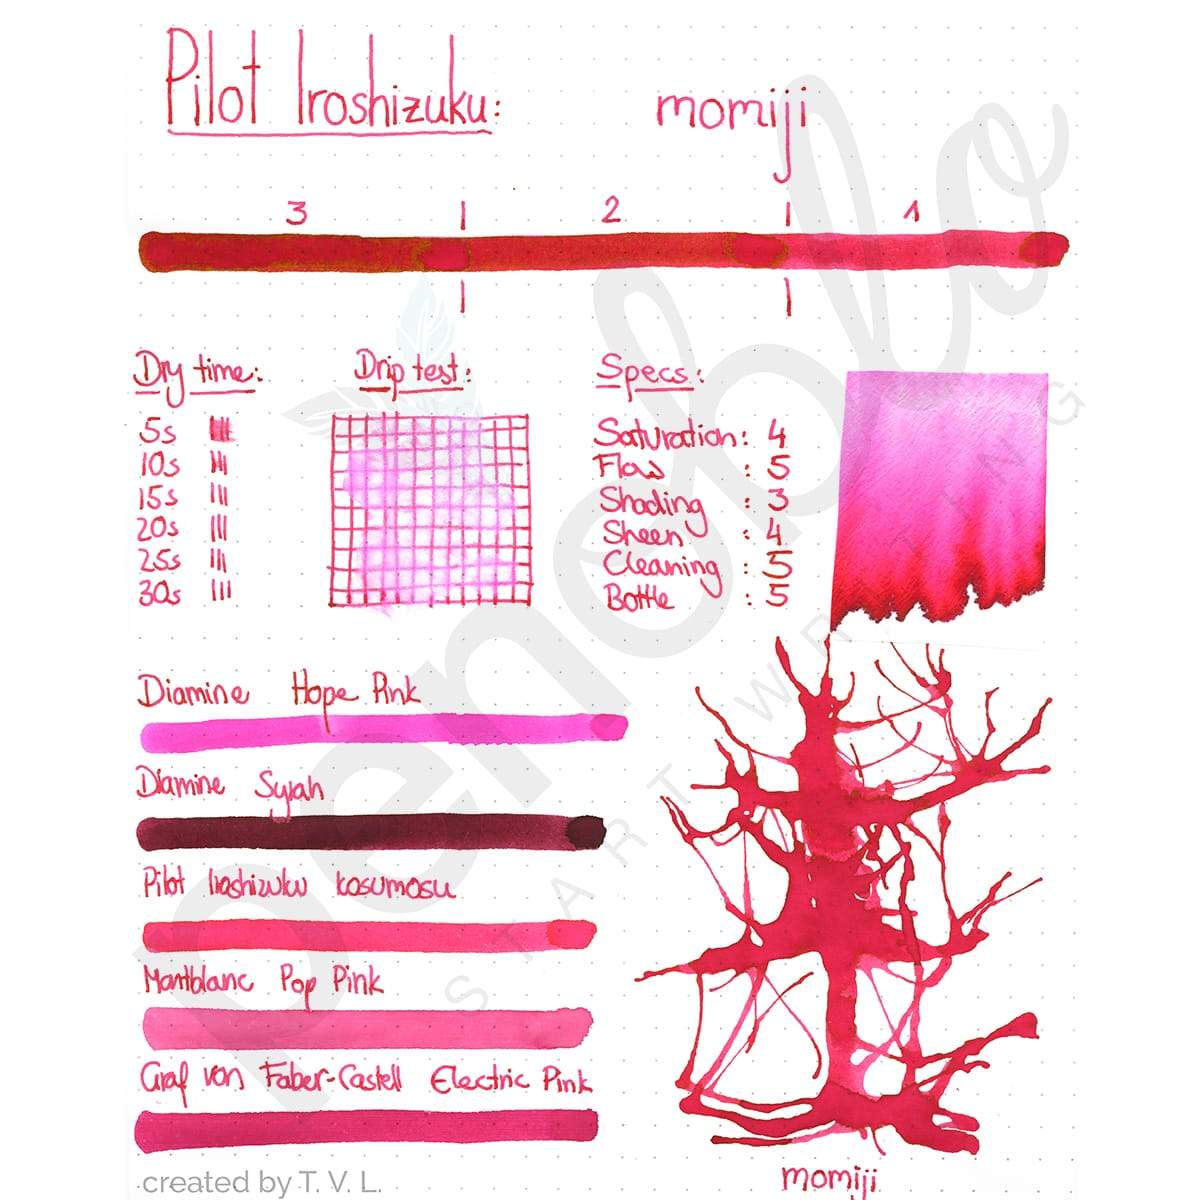 Pilot Iroshizuku: momiji
3 | 2 | 1
Dry time:
5s
10s
15s
20s
25s
30s
Drip test:
Specs:
Saturation: 4
Flow : 5
Shading : 3
Sheen : 4
Cleaning : 5
Bottle : 5
Diamine Hope Pink
Diamine Syrah
Pilot Iroshizuku kosumosu
Montblanc Pop Pink
Graf von Faber-Castell Electric Pink
momiji
penoblo
START WRITING
created by T. V. L.